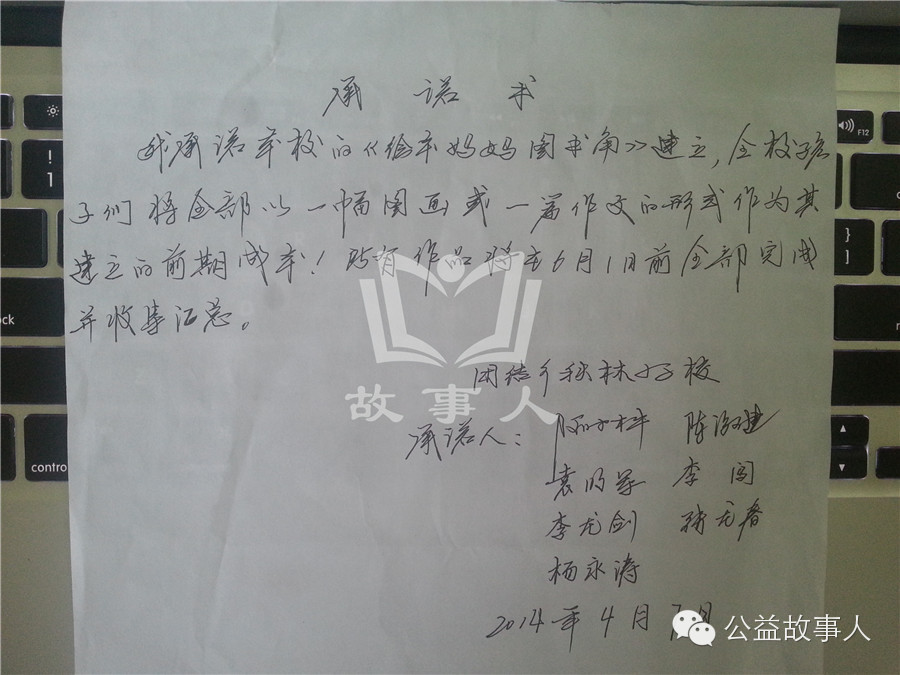 承 诺 书
我承诺本校的《绘本妈妈图书角》建立,全校孩
子们将全部以一幅图画或一篇作文的形式作为其
建立的前期成本!所有作品将在6月1日前全部完成
并收集汇总。
团结乡秋林小学校
故事人
承诺人:
袁明军 李闯
李龙剑
杨永涛
2014年4月
公益故事人
F12
!
1
}
]
ock
control